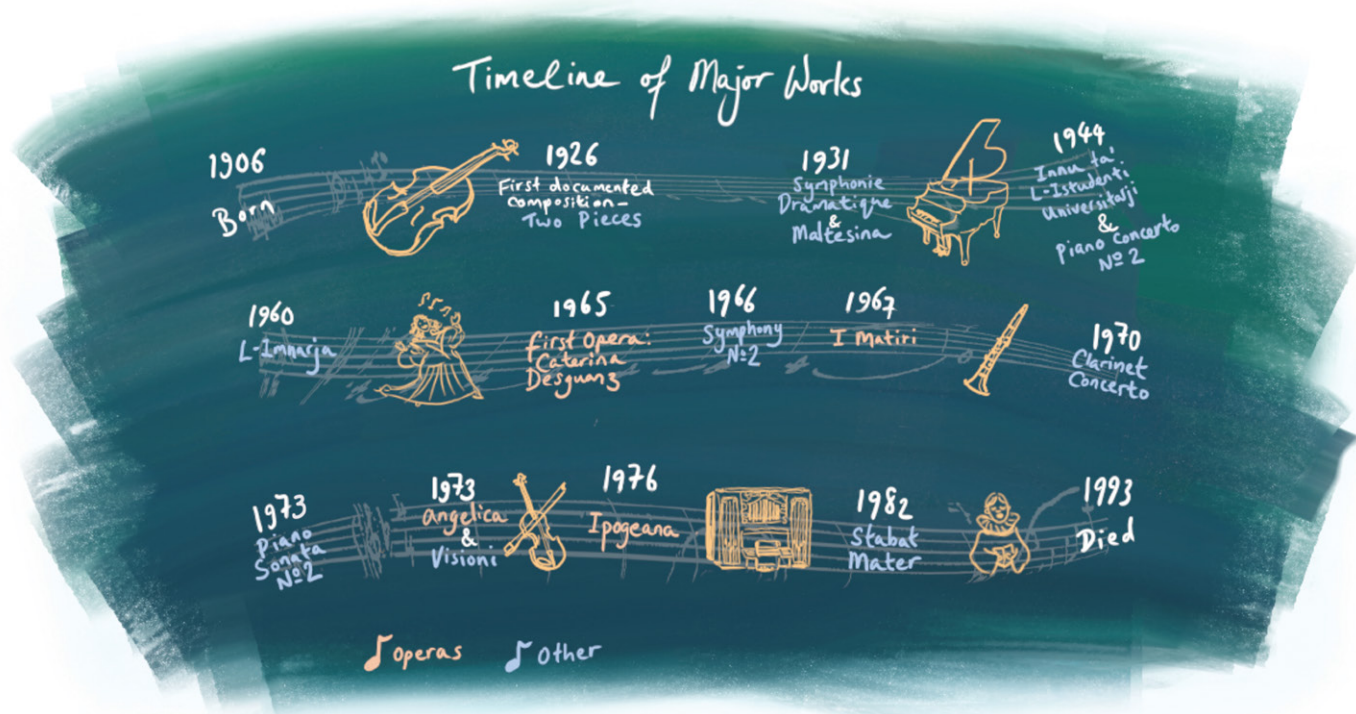 Timeline of Major Works
1906
Born
1926
First documented
composition-
Two Pieces
1931
Symphonie
Dramatique
&
Maltesina
1944
Innu ta'
L-Istudenti
Universitarji
&
Piano Concerto
Nº 2
1960
L-Imnarja
1965
First Opera:
Caterina
Desguanez
1966
Symphony
Nº2
1967
I Matiri
1970
Clarinet
Concerto
1973
Piano
Sonata
Nº2
1973
Angelica
&
Visioni
1976
Ipogeana
1982
Stabat
Mater
1993
Died
Operas
Other